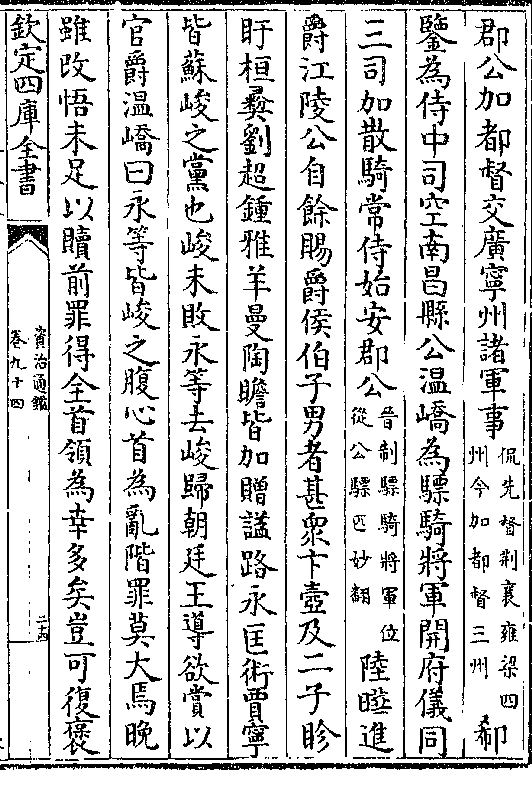 郡公加都督交廣寧州諸軍事侃先督荆襄雍梁四州今加都督三州郗
鑒為侍中司空南昌縣公温嶠為驃騎將軍開府儀同
三司加散騎常侍始安郡公晉制驃騎將軍位從公驃匹妙翻陸曄進
爵江陵公自餘賜爵侯伯子男者甚衆卞壼及二子眕
盱桓彝劉超鍾雅羊曼陶瞻皆加贈諡路永匡術賈寧
皆蘇峻之黨也峻未敗永等去峻歸朝廷王導欲賞以
官爵温嶠曰永等皆峻之腹心首為亂階罪莫大焉晚
雖改悟未足以贖前罪得全首領為幸多矣豈可復褒
欽定四庫全書
資治通鑑
卷九十四
二十四